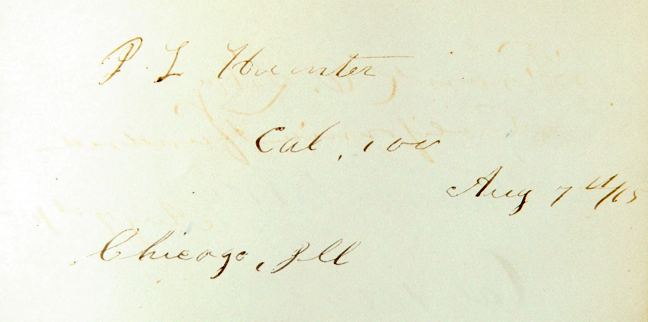 P. L. Hunter
Cal, 100
Aug 7th/65
Chicago, Ill